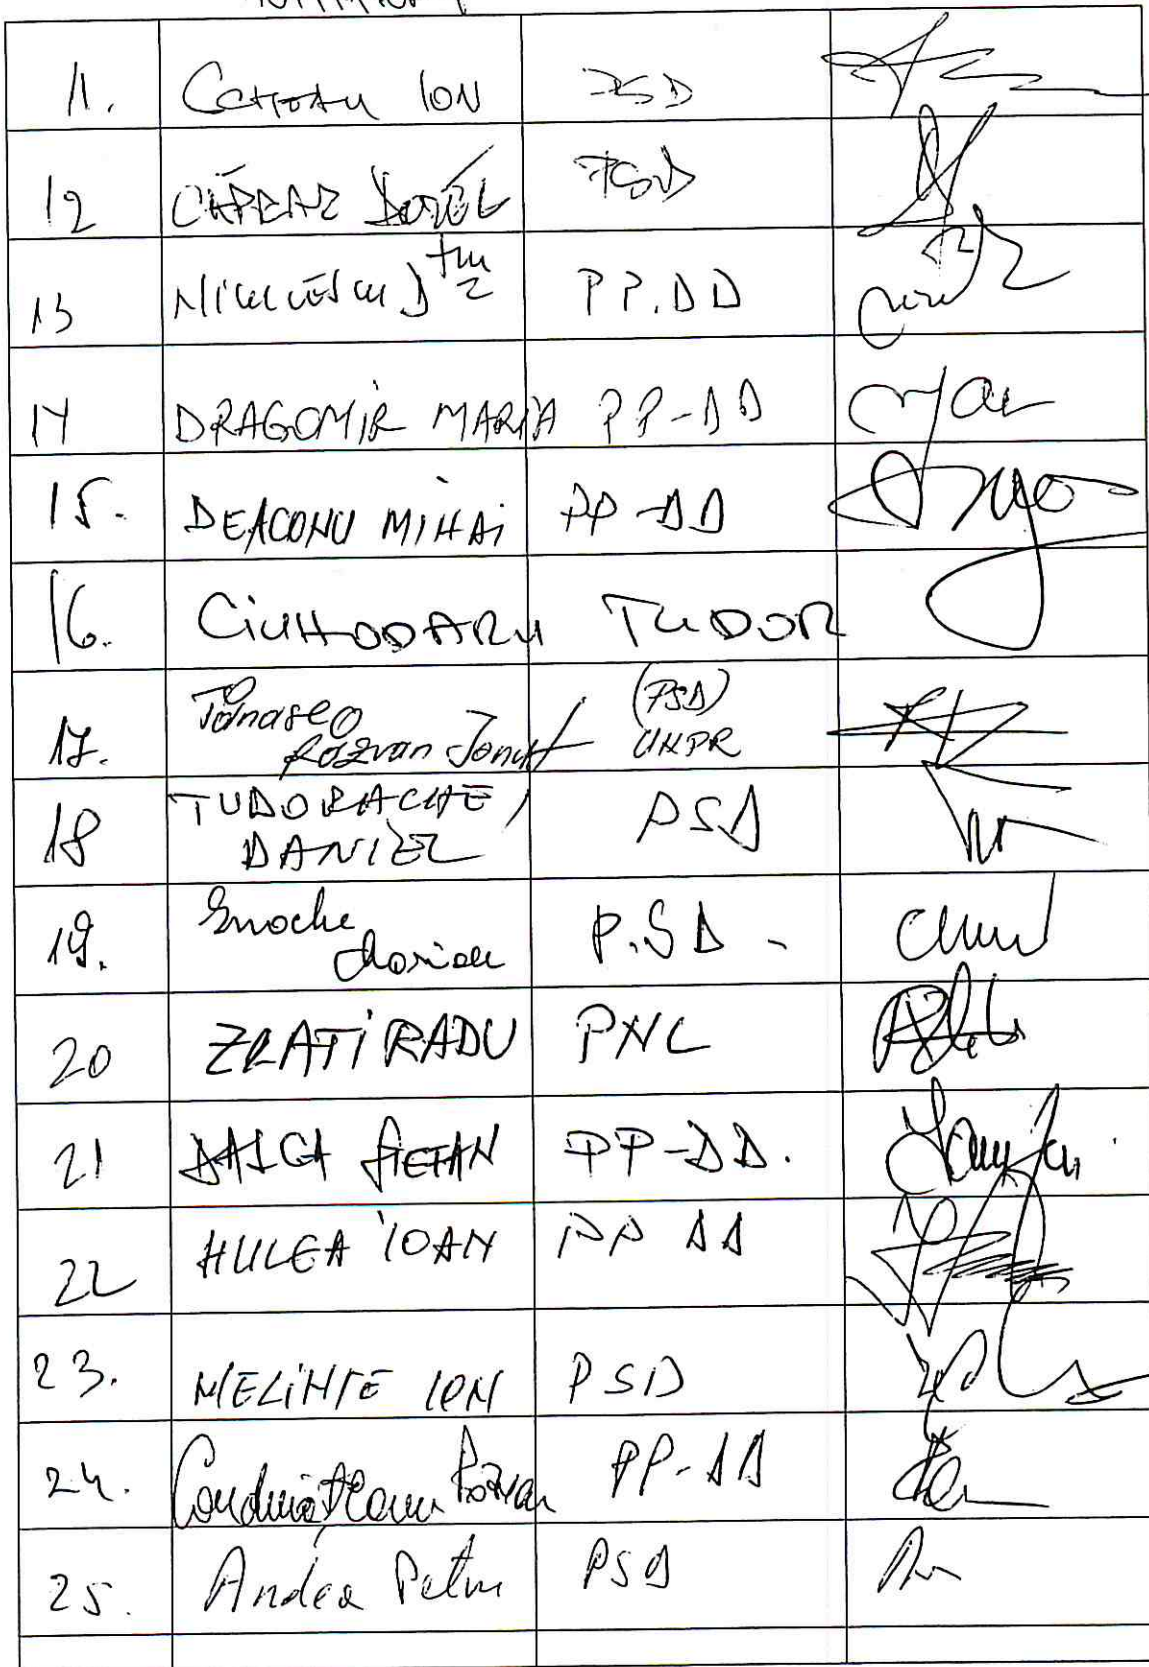 11. ION PSD
12 CĂPRAR DOREL PSD
13 PP.DD
14 DRAGOMIR MARIA PP-DD
15. DEACONU MIHAI PP-DD
16. CiuHODARU TuDOR
17. Tănase (PSD)
Răzvan Ionuț UNPR
18 TUDORACHE PSD
DANIEL
19. Enache P.SD -
Marian
20 ZLATI RADU PNL
21 DALCA ȘTEFAN PP-DD.
22 HULEA IOAN PP DD
23. MELINTE ION PSD
24. Condurățeanu Răzvan PP-DD
25. Andea Petru PSD